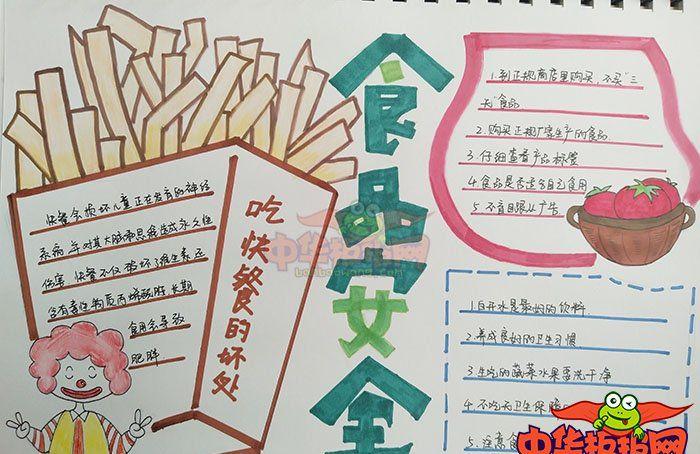 食品安全
吃快餐的坏处
快餐会损坏儿童正在发育的神经
系统,并对其大脑和思维造成永久性
伤害 快餐不仅破坏了维生素 还
含有毒性物质丙烯酰胺 长期
食用会导致
肥胖
1.到正规商店里购买,不买"三
无"食品
2.购买正规厂家生产的食品
3.仔细查看产品标签
4.食品是否适合自己食用
5.不盲目跟从广告
1.白开水是最好的饮料
2.养成良好的卫生习惯
3.生吃的蔬菜水果要洗干净
4.不吃无卫生保障
5.注意食
中华板报网
banbaowang.com
中华板报网